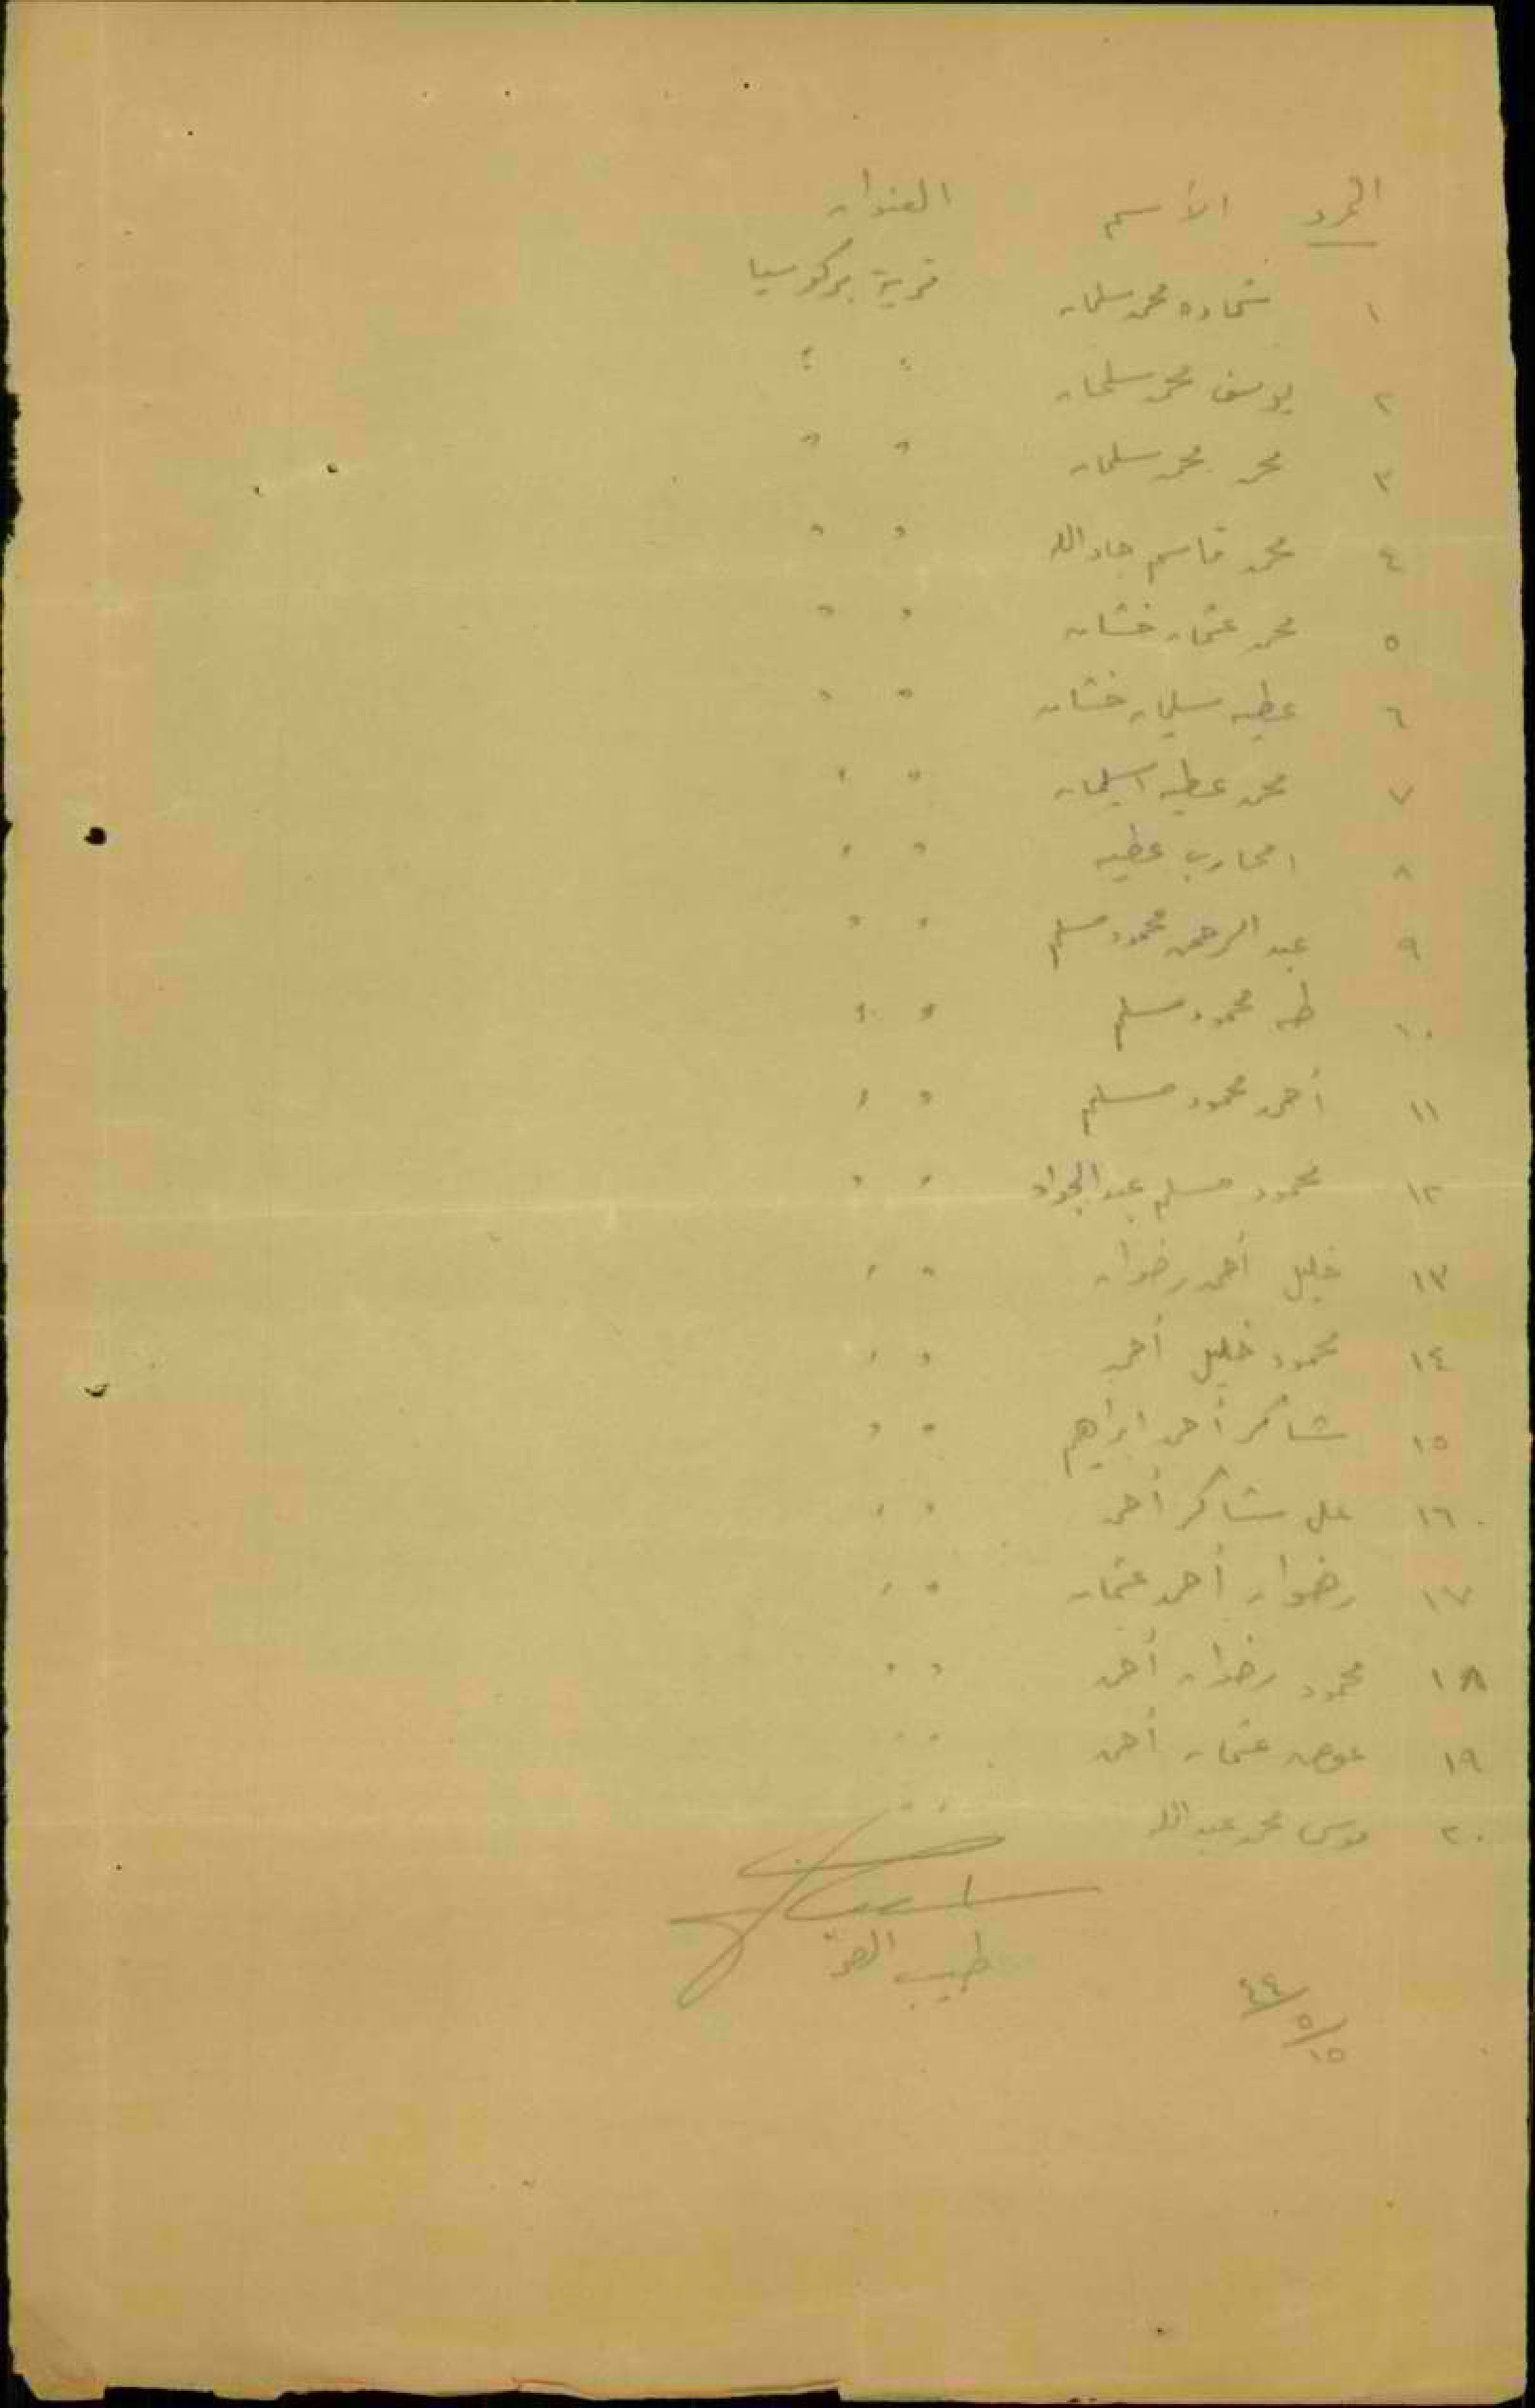 النمرة الأسم العنوان
١ شحاده محمد سلمان قرية بركوسيا
٢ يوسف محمد سلمان " "
٣ محمد محمد سلمان " "
٤ محمد قاسم جادالله " "
٥ محمد عثمان خشان " "
٦ عطيه سليمان خشان " "
٧ محمد عطيه اسليمان " "
٨ امحارب عطيه " "
٩ عبد الرحمن محمود مسلم " "
١٠ طه محمود مسلم " "
١١ أحمد محمود مسلم " "
١٢ محمود مسلم عبد الجواد " "
١٣ خليل أحمد رضوان " "
١٤ محمود خليل أحمد " "
١٥ شاكر أحمد ابراهيم " "
١٦ علي شاكر أحمد " "
١٧ رضوان أحمد عثمان " "
١٨ محمود رضوان أحمد " "
١٩ عوض عثمان أحمد " "
٢٠ موسى محمد عبدالله " "
طبيب الصحة
١٥/٥/٤٤